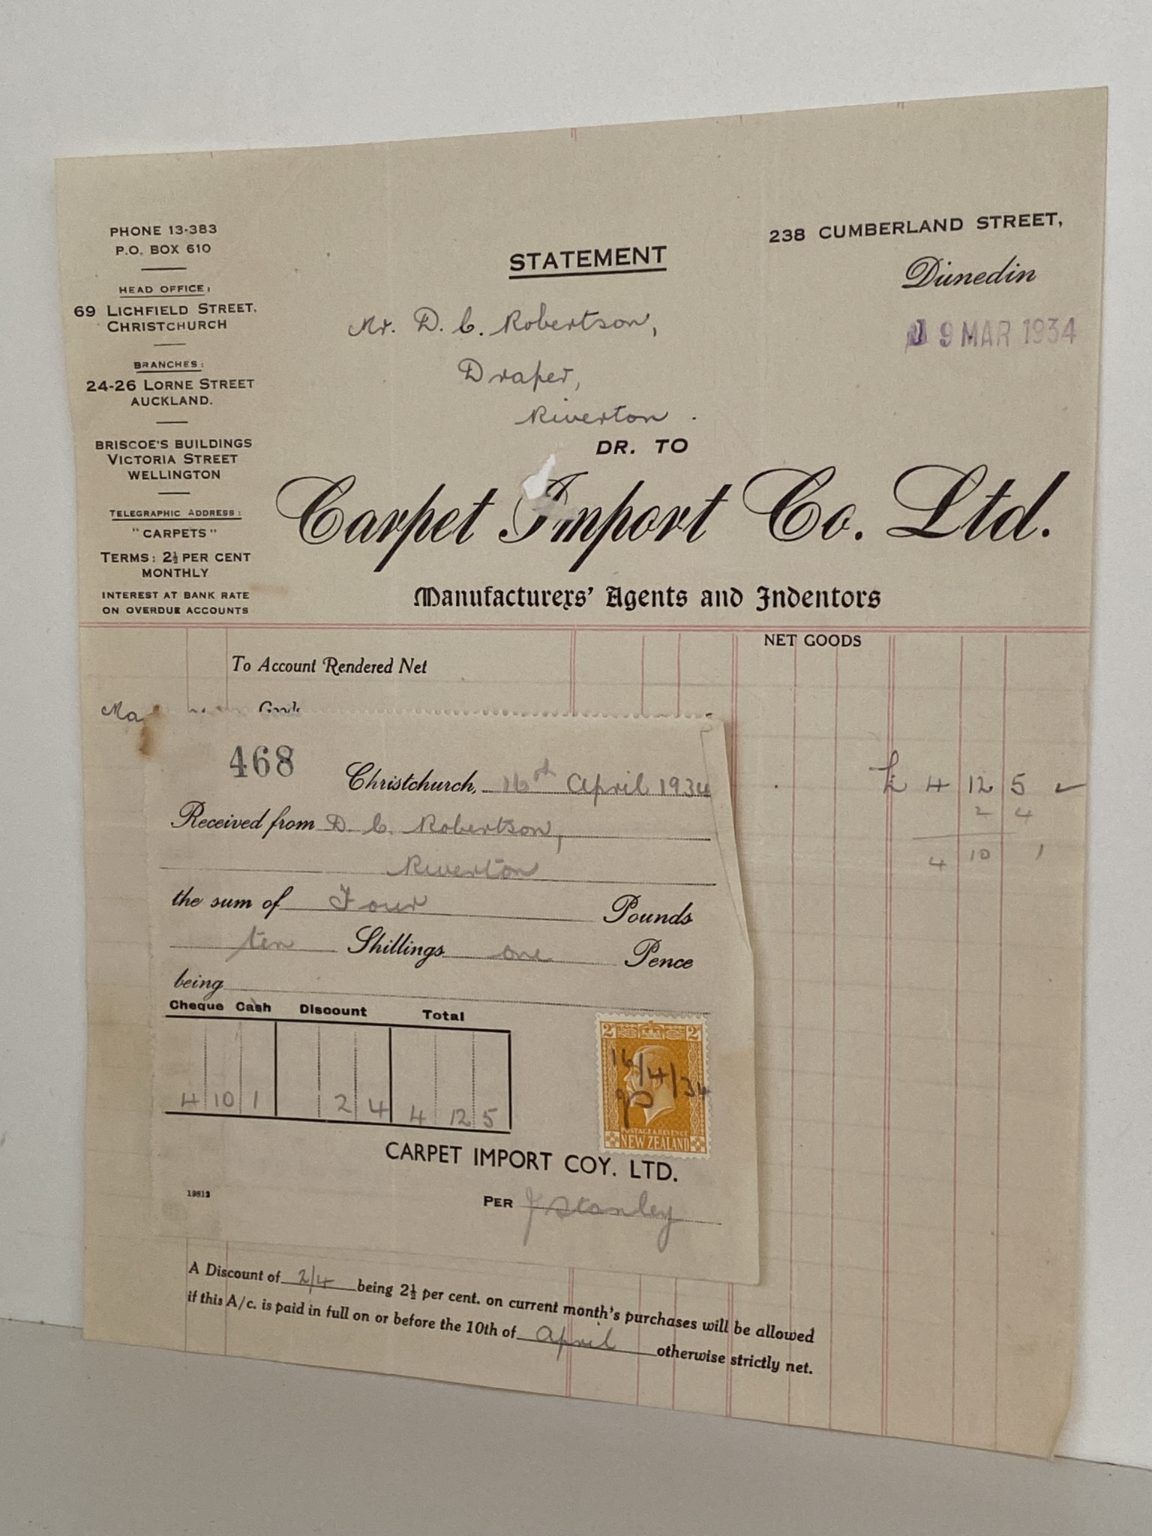 PHONE 13-383
P.O. BOX 610
HEAD OFFICE:
69 LICHFIELD STREET,
CHRISTCHURCH
BRANCHES:
24-26 LORNE STREET
AUCKLAND.
BRISCOE'S BUILDINGS
VICTORIA STREET
WELLINGTON
TELEGRAPHIC ADDRESS:
"CARPETS"
TERMS: 2½ PER CENT
MONTHLY
INTEREST AT BANK RATE
ON OVERDUE ACCOUNTS
STATEMENT
238 CUMBERLAND STREET,
Dunedin
9 MAR 1934
Mr. D. C. Robertson,
Draper,
Riverton.
DR. TO
Carpet Import Co. Ltd.
Manufacturers' Agents and Indentors
NET GOODS
To Account Rendered Net
Goods
£ 4 12 5
2 4
4 10 1
468
Christchurch, 16th April 1934
Received from D. C. Robertson,
Riverton
the sum of Four Pounds
ten Shillings one Pence
being
Cheque Cash Discount Total
4 10 1 2 4 4 12 5
2 2
16/4/34
POSTAGE & REVENUE
NEW ZEALAND
CARPET IMPORT COY. LTD.
PER J Stanley
19813
A Discount of 2/4 being 2½ per cent. on current month's purchases will be allowed
if this A/c. is paid in full on or before the 10th of April otherwise strictly net.